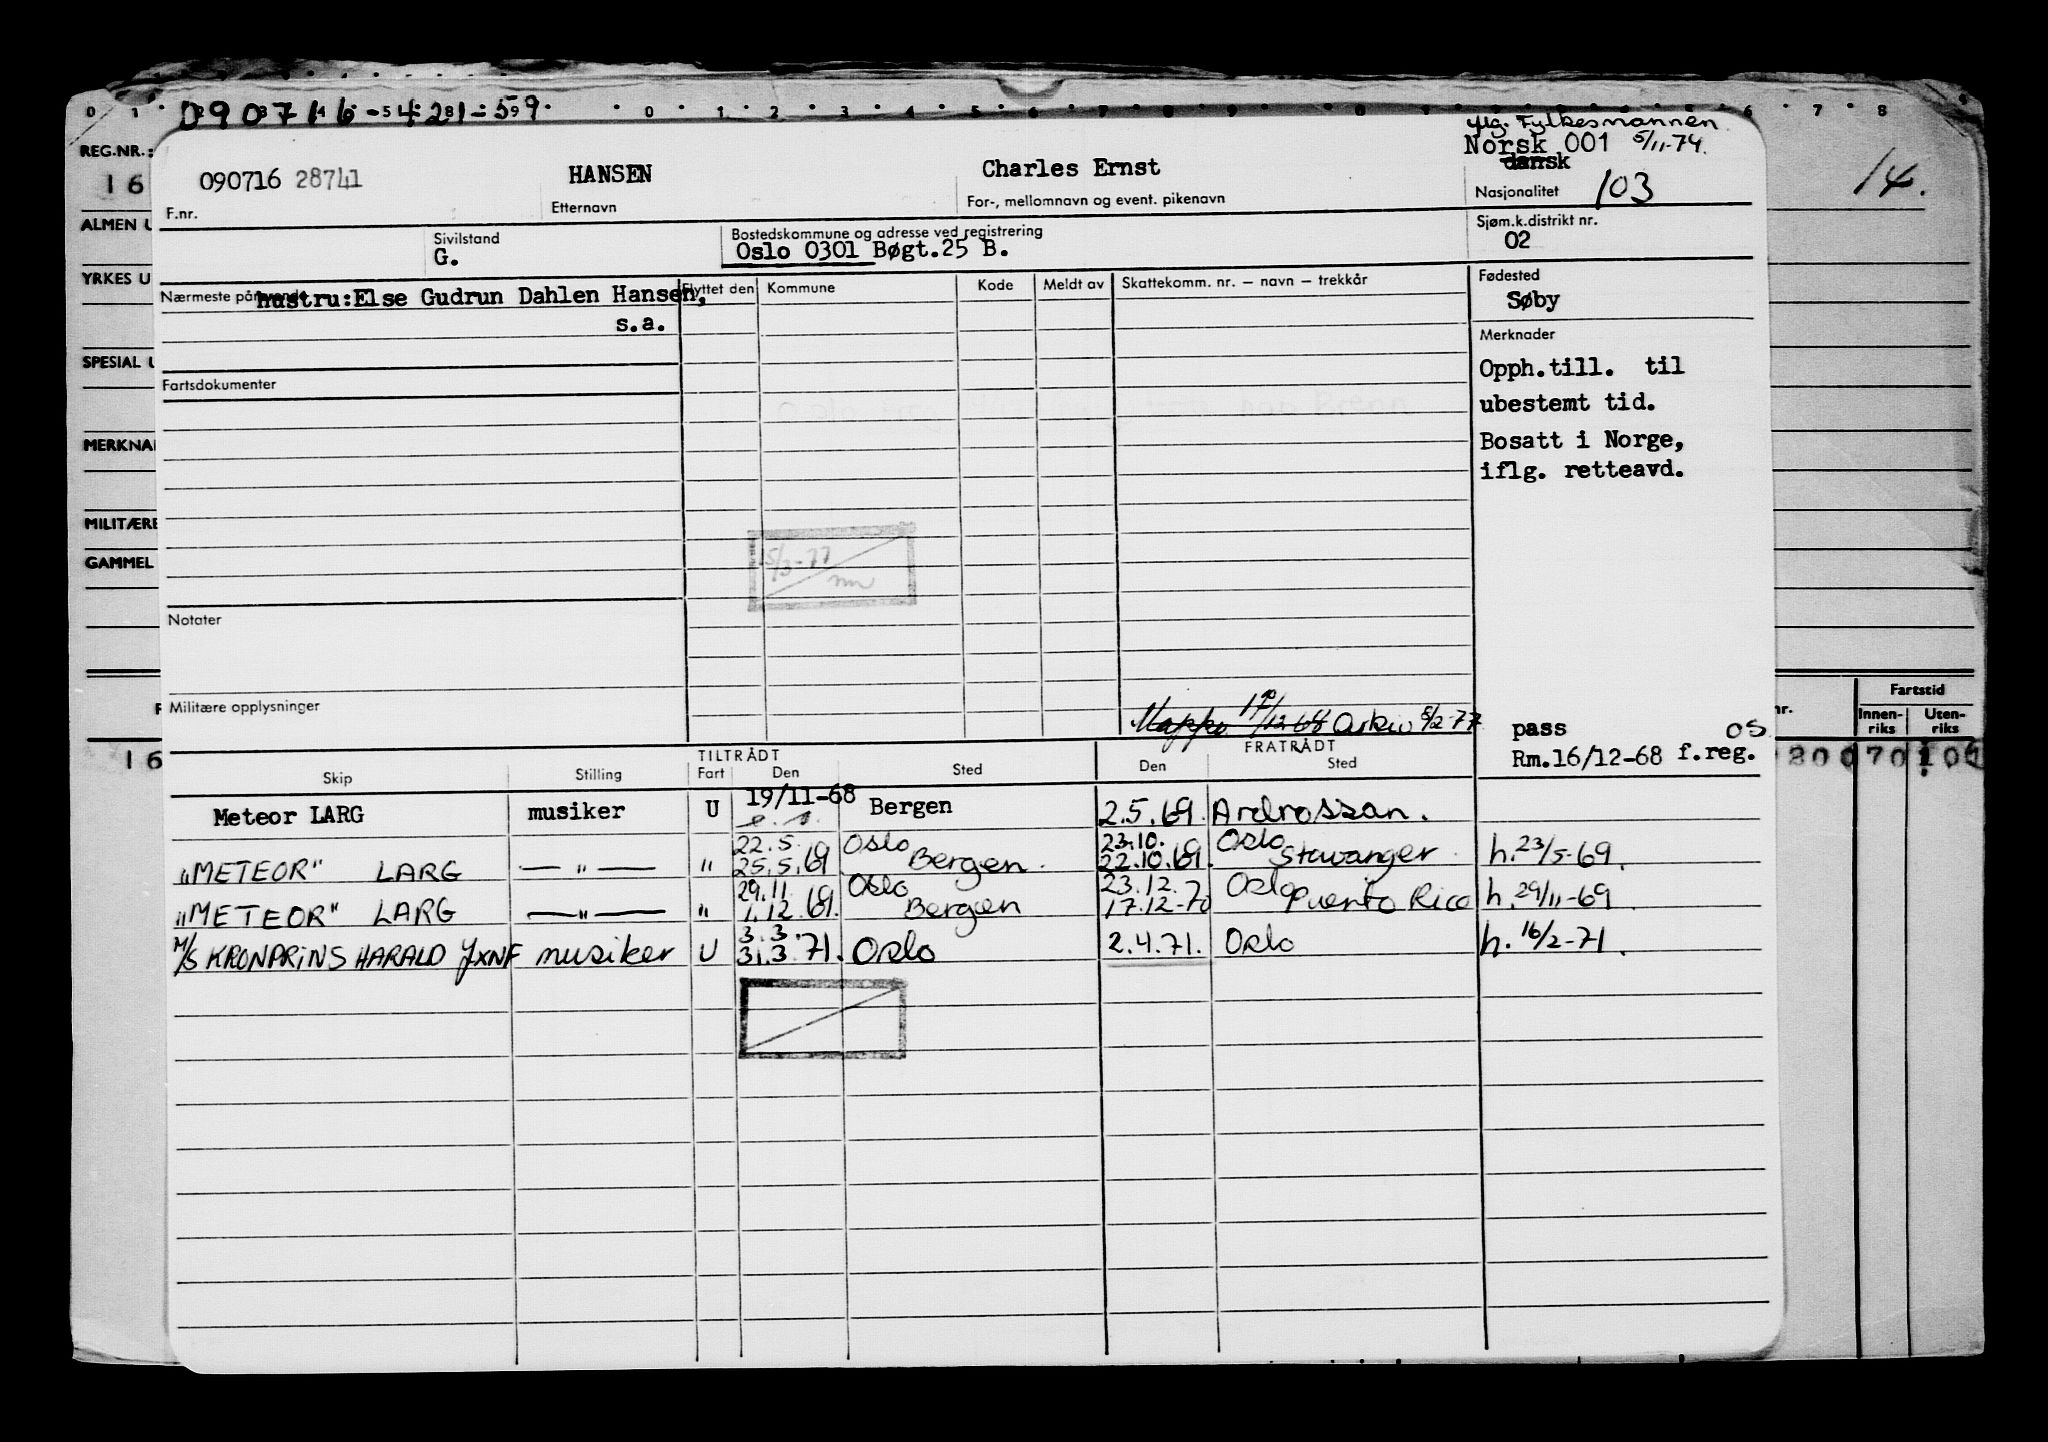 090716-421-59
REG.NR.:
16
ALMEN U
YRKES U
SPESIAL U
MERKNA
MILITÆRE
GAMMEL
14.
iflg. Fylkesmannen
Norsk 001 5/11-74.
dansk
090716 28741 HANSEN Charles Ernst
Nasjonalitet 103
F.nr. Etternavn For-, mellomnavn og event. pikenavn
Sivilstand
G.
Bostedskommune og adresse ved registrering
Oslo 0301 Bøgt.25 B.
Sjøm.k.distrikt nr.
02
Nærmeste pårørende hustru:Else Gudrun Dahlen Hansen,
s.a.
Flyttet den Kommune Kode Meldt av Skattekomm. nr. – navn – trekkår
Fødested
Søby
Merknader
Opph.till. til
ubestemt tid.
Bosatt i Norge,
iflg. retteavd.
Fartsdokumenter
15/3-77
Notater
Militære opplysninger
Mappe 17/12-68 Arkiv 8/2-77
pass OS
Rm.16/12-68 f.reg.
Fartstid
Innen-riks Uten-riks
nr.
16
TILTRÅDT FRATRÅDT
Skip Stilling Fart Den Sted Den Sted
Meteor LARG musiker U 19/11-68 Bergen 2.5.69. Ardrossan.
22.5. Oslo 23.10. Oslo
"METEOR" LARG — " — " 25.5.69 Bergen. 22.10.69. Stavanger h. 23/5-69.
29.11. Oslo 23.12. Oslo
"METEOR" LARG — " — " 1.12.69. Bergen 17.12-70 Puerto Rico h. 29/11-69.
3.3.
M/S KRONPRINS HARALD JXNF musiker U 31.3.71. Oslo 2.4.71. Oslo h. 16/2-71.